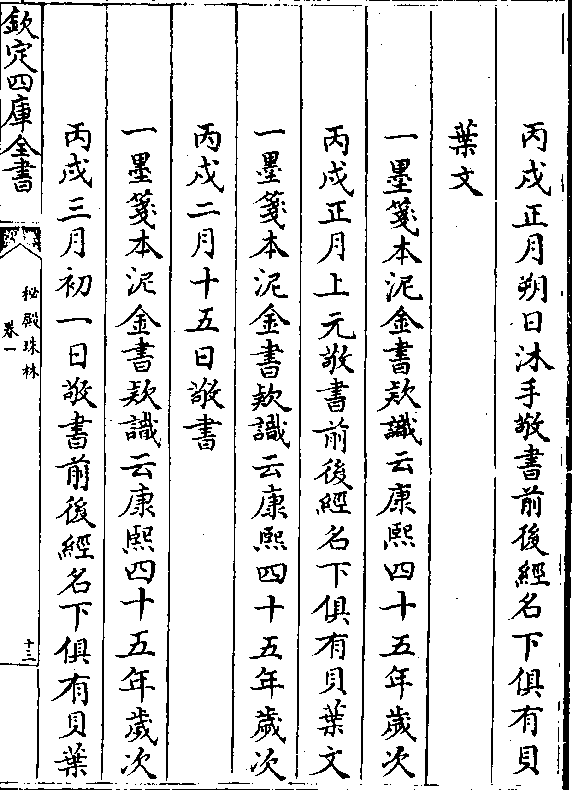 丙戌正月朔日沐手敬書前後經名下俱有貝
葉文
一墨箋本泥金書款識云康熙四十五年歲次
丙戌正月上元敬書前後經名下俱有貝葉文
一墨箋本泥金書款識云康熙四十五年歲次
丙戌二月十五日敬書
一墨箋本泥金書款識云康熙四十五年歲次
丙戌三月初一日敬書前後經名下俱有貝葉
欽定四庫全書
秘殿珠林
卷一
十三